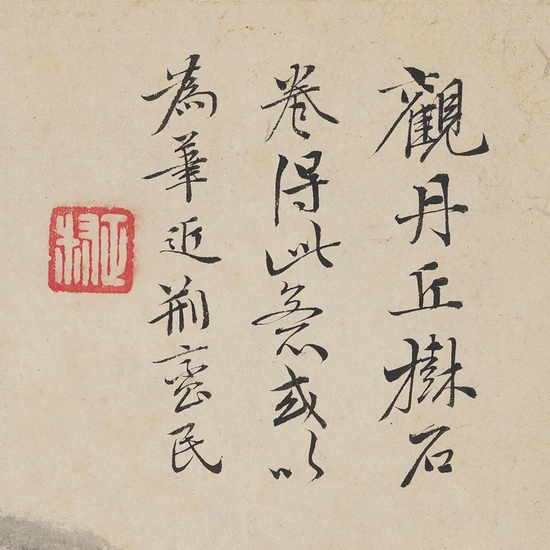 觀丹丘樹石
卷得此意或以
為筆近荊蠻民